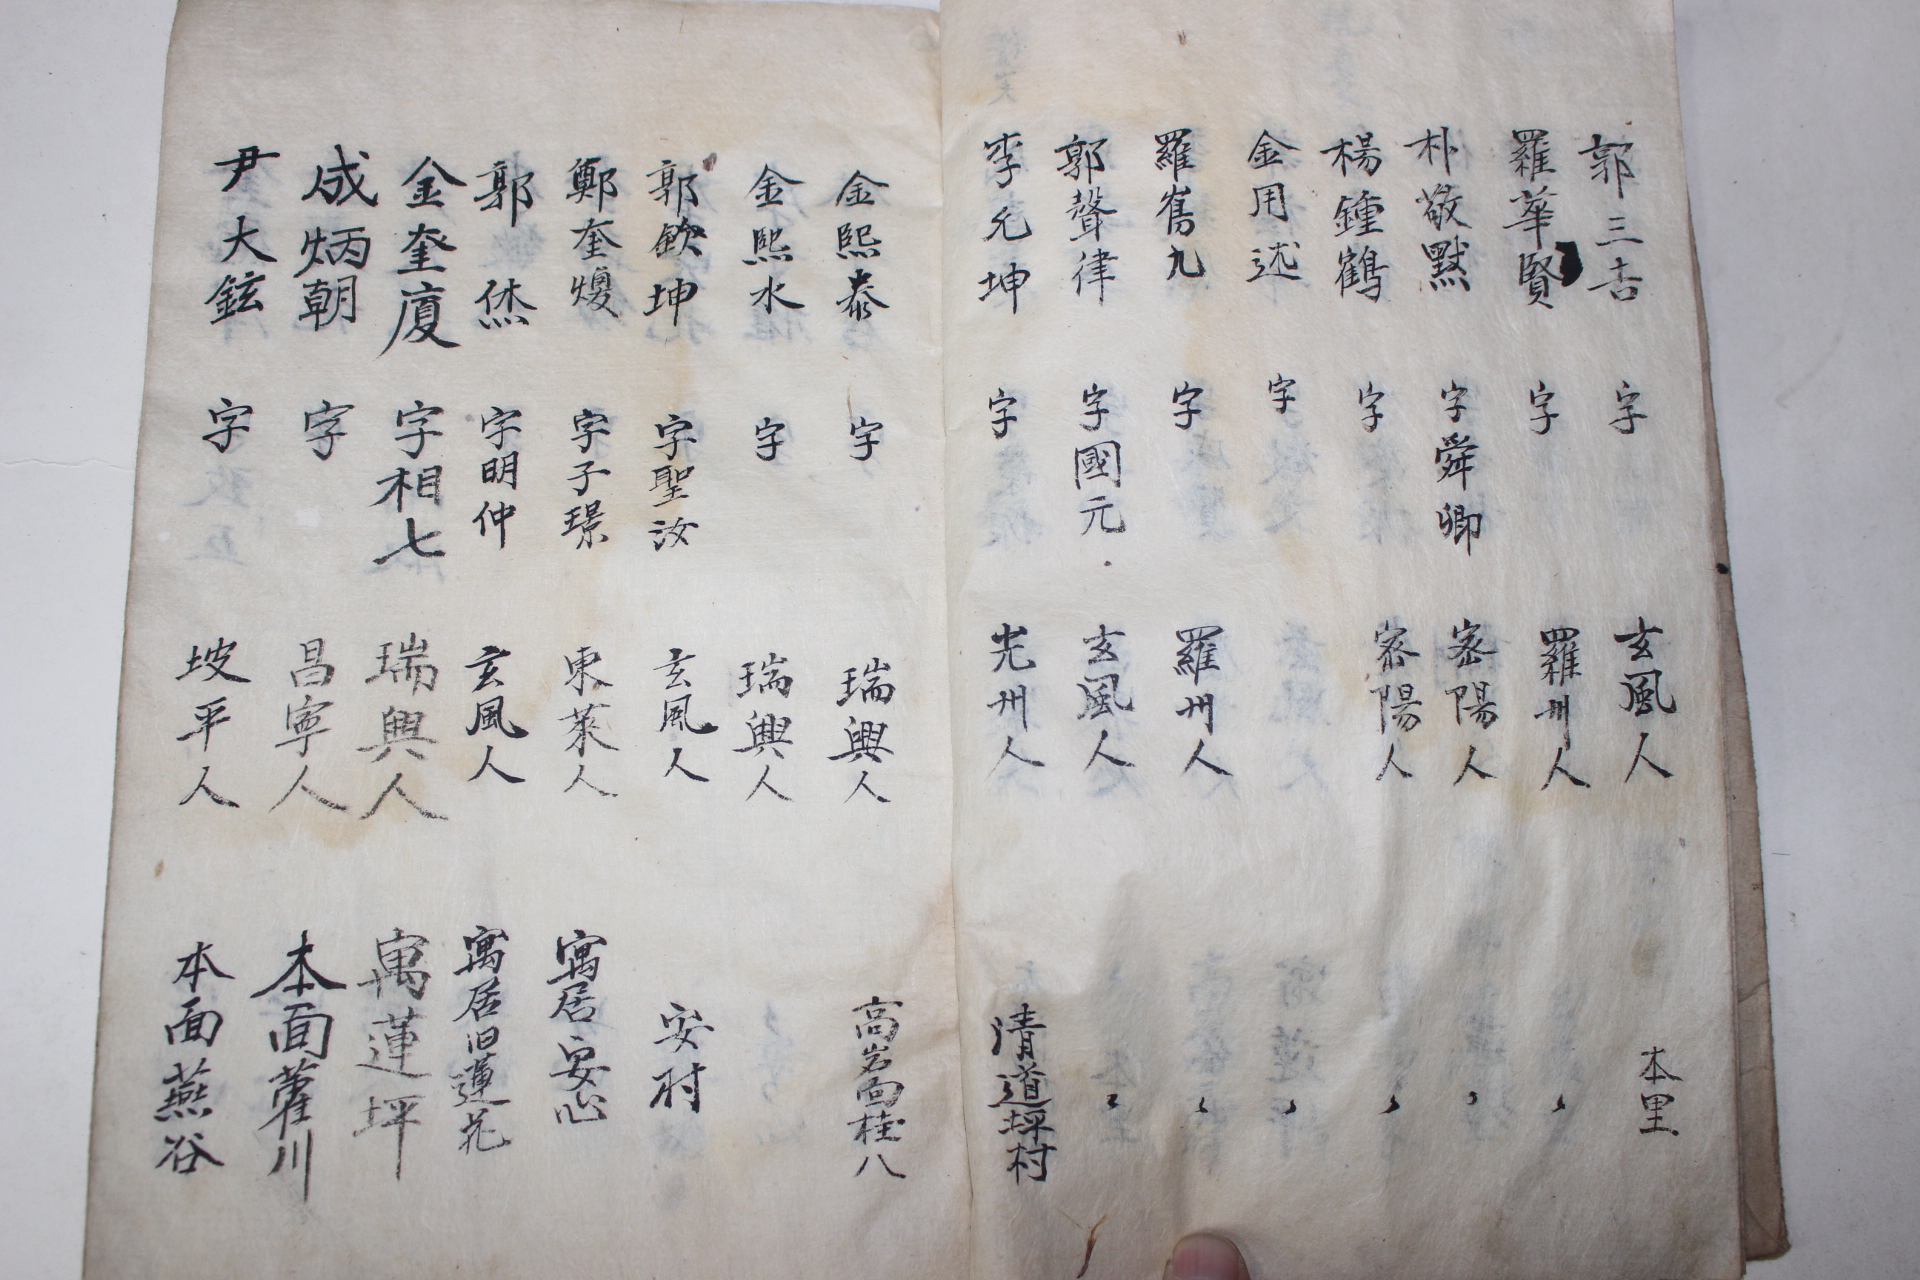 郭三吉 字 玄風人 本里
羅華賢 字 羅州人 〻
朴敬默 字舜卿 密陽人 〻
楊鍾鶴 字 密陽人 〻
金用述 字 〻
羅雋九 字 羅州人 〻
郭聲律 字國元 玄風人 〻
李元坤 字 光州人 清道坪村
金熙泰 字 瑞興人 高岩面桂八
金熙水 字 瑞興人
郭欽坤 字聖汝 玄風人 安村
鄭奎煥 字子璟 東萊人 寓居安心
郭 烋 字明仲 玄風人 寓居旧蓮花
金奎廈 字相七 瑞興人 寓蓮坪
成炳朝 字 昌寧人 本面藿川
尹大鉉 字 坡平人 本面燕谷